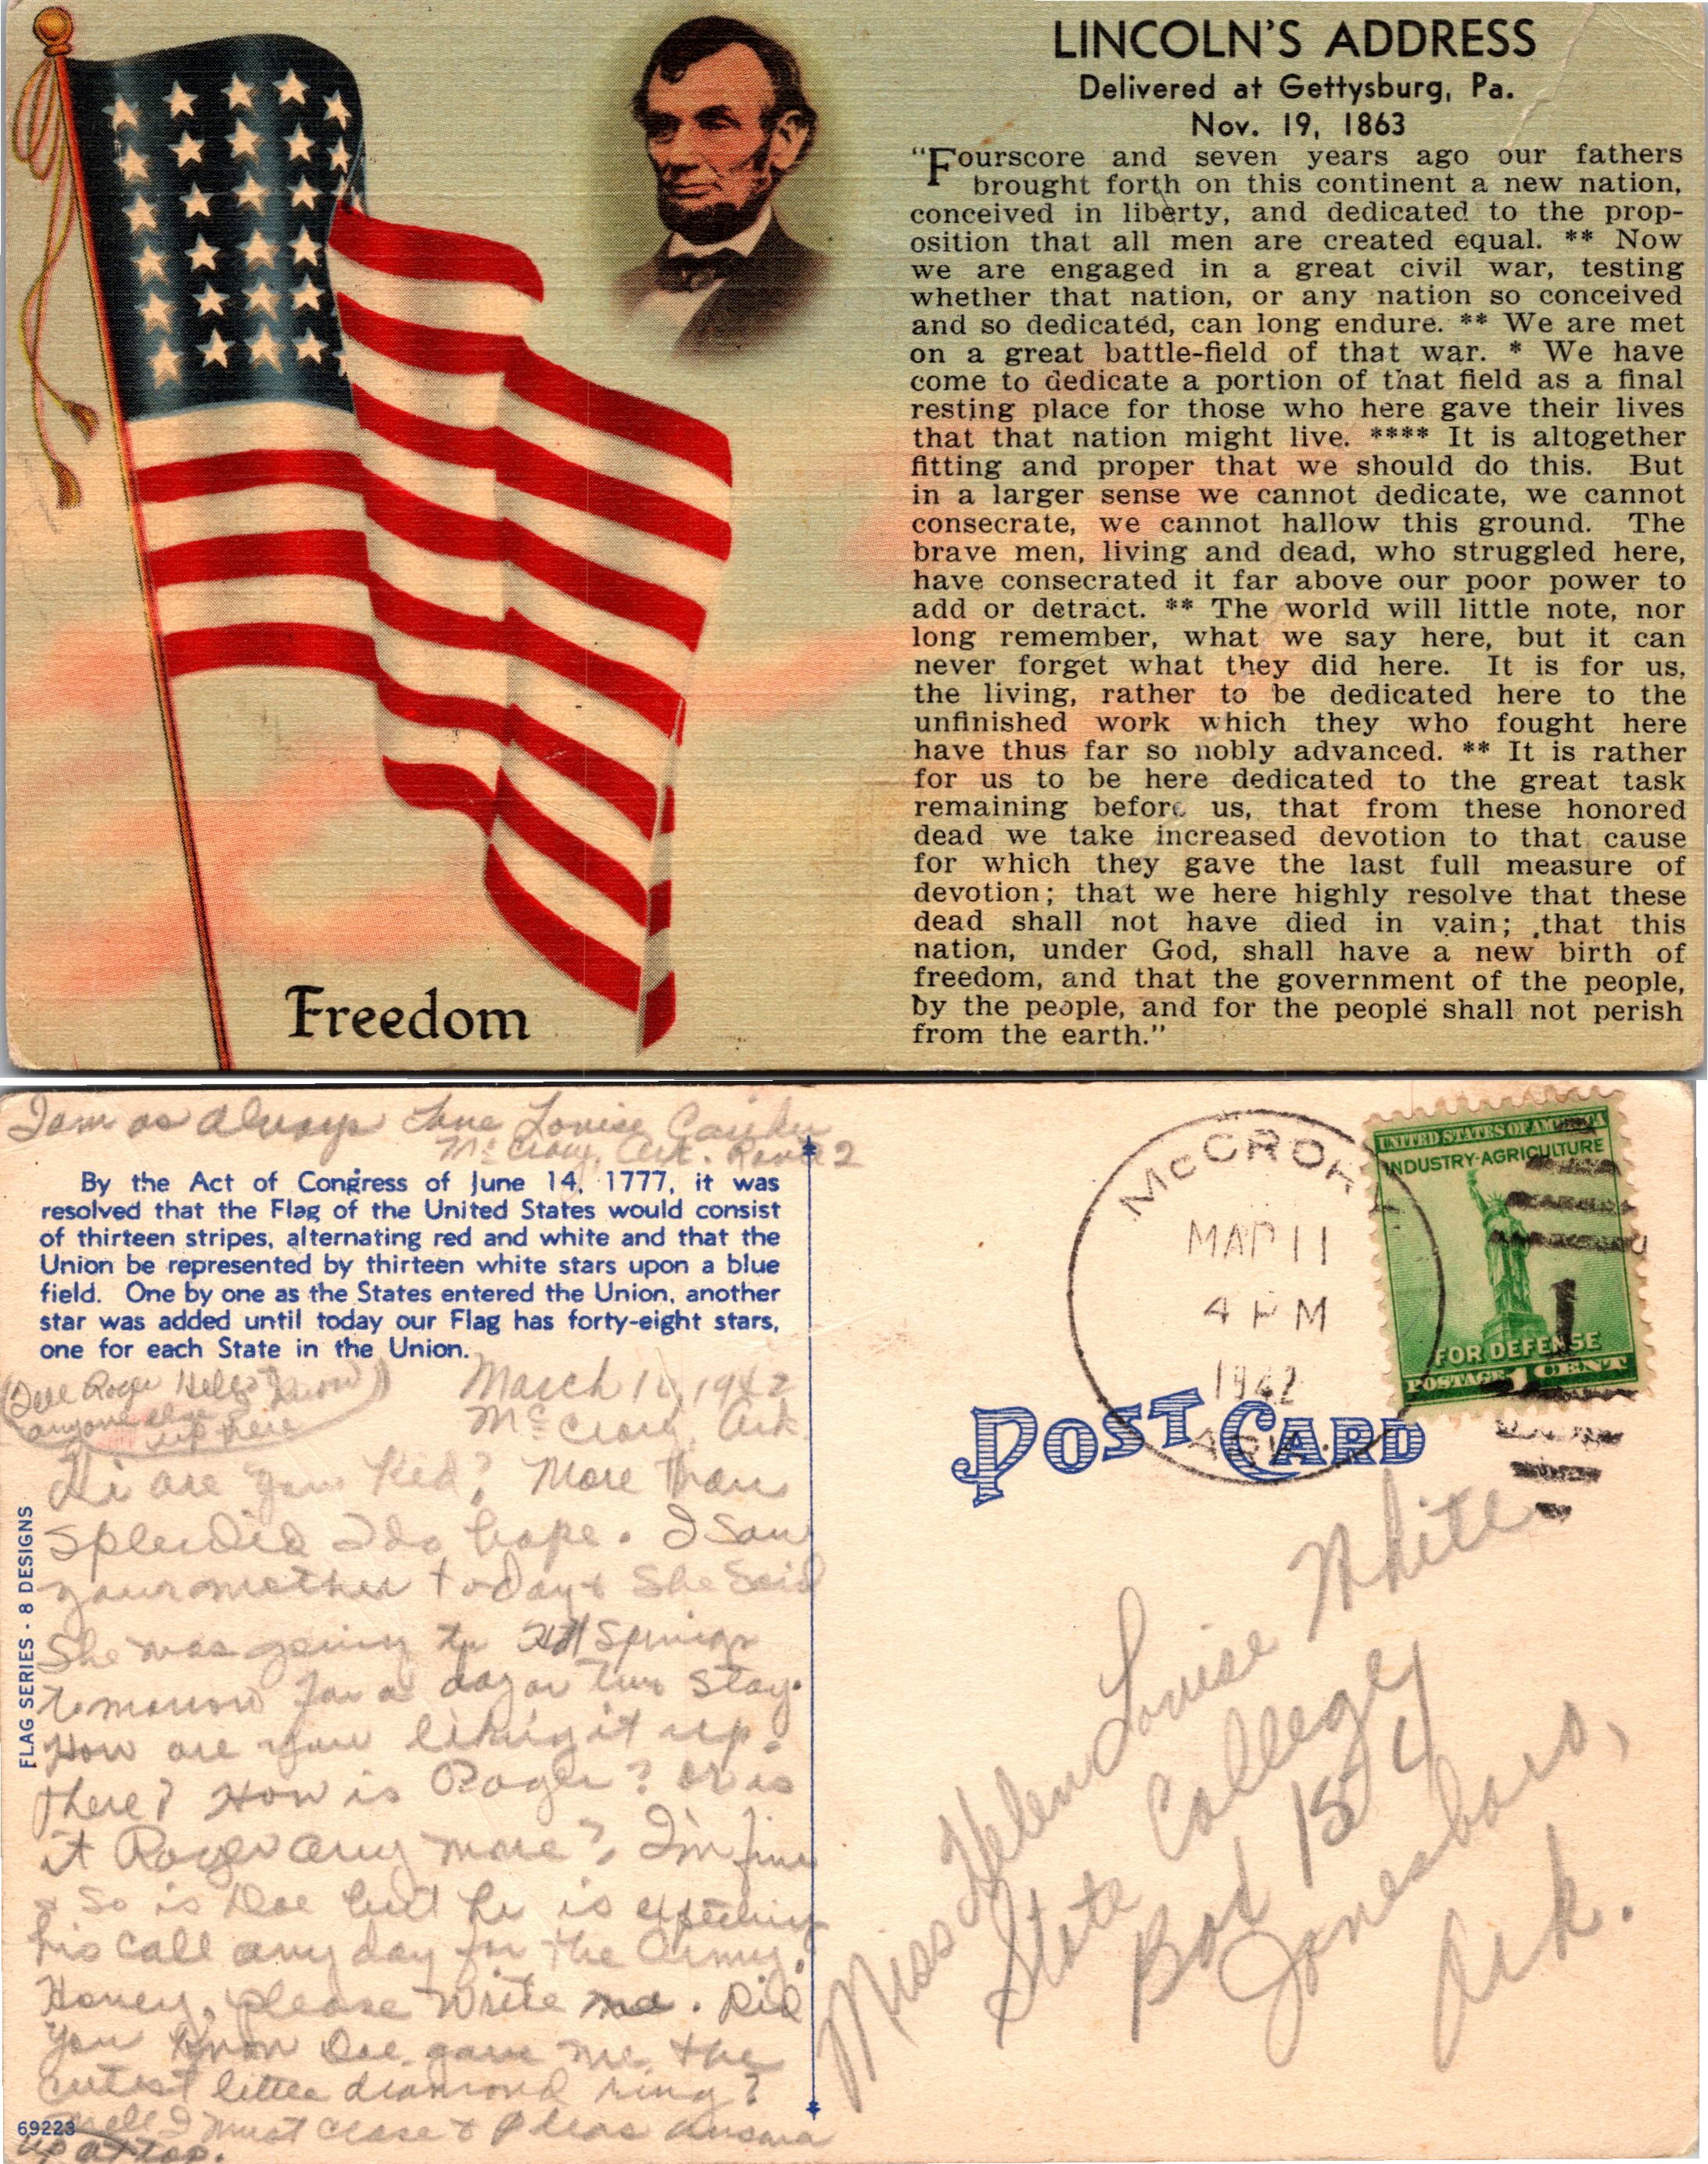 LINCOLN'S ADDRESS
Delivered at Gettysburg, Pa.
Nov. 19, 1863
"Fourscore and seven years ago our fathers
brought forth on this continent a new nation,
conceived in liberty, and dedicated to the prop-
osition that all men are created equal. ** Now
we are engaged in a great civil war, testing
whether that nation, or any nation so conceived
and so dedicated, can long endure. ** We are met
on a great battle-field of that war. * We have
come to dedicate a portion of that field as a final
resting place for those who here gave their lives
that that nation might live. **** It is altogether
fitting and proper that we should do this. But
in a larger sense we cannot dedicate, we cannot
consecrate, we cannot hallow this ground. The
brave men, living and dead, who struggled here,
have consecrated it far above our poor power to
add or detract. ** The world will little note, nor
long remember, what we say here, but it can
never forget what they did here. It is for us,
the living, rather to be dedicated here to the
unfinished work which they who fought here
have thus far so nobly advanced. ** It is rather
for us to be here dedicated to the great task
remaining before us, that from these honored
dead we take increased devotion to that cause
for which they gave the last full measure of
devotion; that we here highly resolve that these
dead shall not have died in vain; that this
nation, under God, shall have a new birth of
freedom, and that the government of the people,
by the people, and for the people shall not perish
from the earth."
Freedom
I am as always Louise
Mc Crory, Ark. Route 2
By the Act of Congress of June 14, 1777, it was
resolved that the Flag of the United States would consist
of thirteen stripes, alternating red and white and that the
Union be represented by thirteen white stars upon a blue
field. One by one as the States entered the Union, another
star was added until today our Flag has forty-eight stars,
one for each State in the Union.
(Tell Roger Hello &
anyone else I know
up there)
March 11, 1942
Mc Crory, Ark.
Hi are you Kid? More than
splendid I do hope. I saw
your mother today & she said
she was going to Hot Springs
tomorrow for a day or two stay.
How are you liking it up
there? How is Roger? Or is
it Roger any more? I'm fine
& so is Doe but he is expecting
his call any day for the Army.
Honey, please write me. Did
you know Doe gave me the
cutest little diamond ring?
Well I must close & please answer
up at top.
FLAG SERIES - 8 DESIGNS
69223
McCRORY
MAR 11
4 PM
1942
ARK.
UNITED STATES OF AMERICA
INDUSTRY-AGRICULTURE
FOR DEFENSE
POSTAGE 1 CENT
1
POST CARD
Miss Helen Louise White
State College
Box 154
Jonesboro,
Ark.